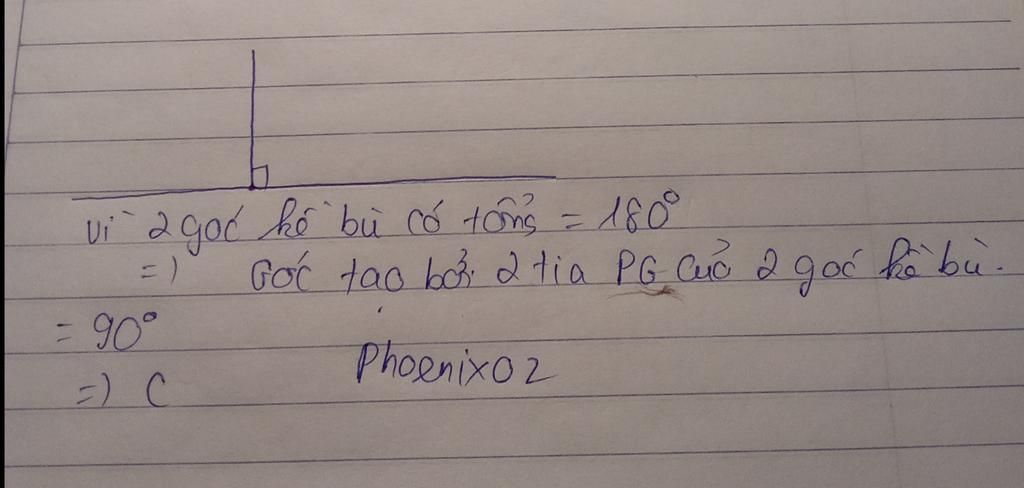 vì 2 góc kề bù có tổng = 180°
=) Góc tạo bởi 2 tia PG của 2 góc kề bù.
= 90°
=) C
Phoenix02